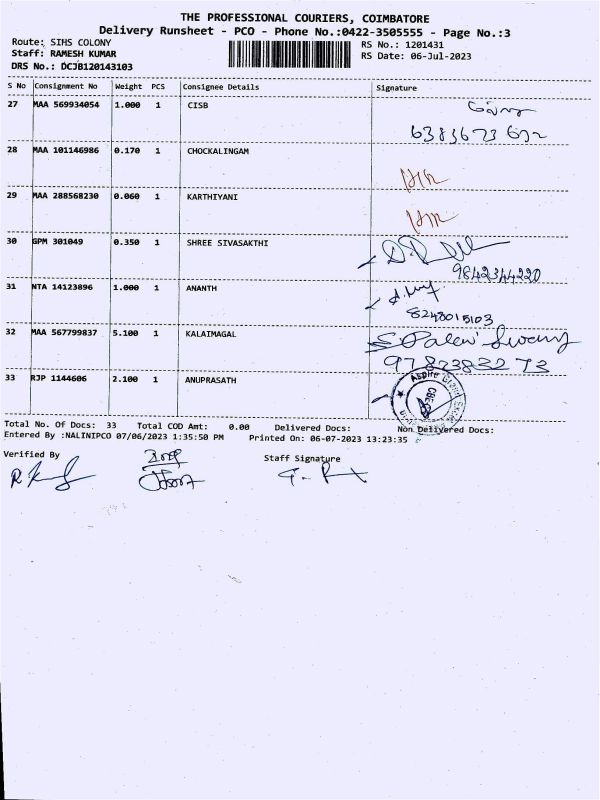 THE PROFESSIONAL COURIERS, COIMBATORE
Delivery Runsheet - PCO - Phone No.:0422-3505555 - Page No.:3
Route: SIHS COLONY
RS No.: 1201431
Staff: RAMESH KUMAR
RS Date: 06-Jul-2023
DRS No.: DCJB120143103
S No Consignment No Weight PCS Consignee Details Signature
27 MAA 569934054 1.000 1 CISB
28 MAA 101146986 0.170 1 CHOCKALINGAM
29 MAA 288568230 0.060 1 KARTHIYANI
30 GPM 301049 0.350 1 SHREE SIVASAKTHI
9842344220
31 NTA 14123896 1.000 1 ANANTH
8248015103
32 MAA 567799837 5.100 1 KALAIMAGAL
33 RJP 1144606 2.100 1 ANUPRASATH
Aspire
CBE
Total No. Of Docs: 33 Total COD Amt: 0.00 Delivered Docs: Non Delivered Docs:
Entered By :NALINIPCO 07/06/2023 1:35:50 PM Printed On: 06-07-2023 13:23:35
Verified By Staff Signature